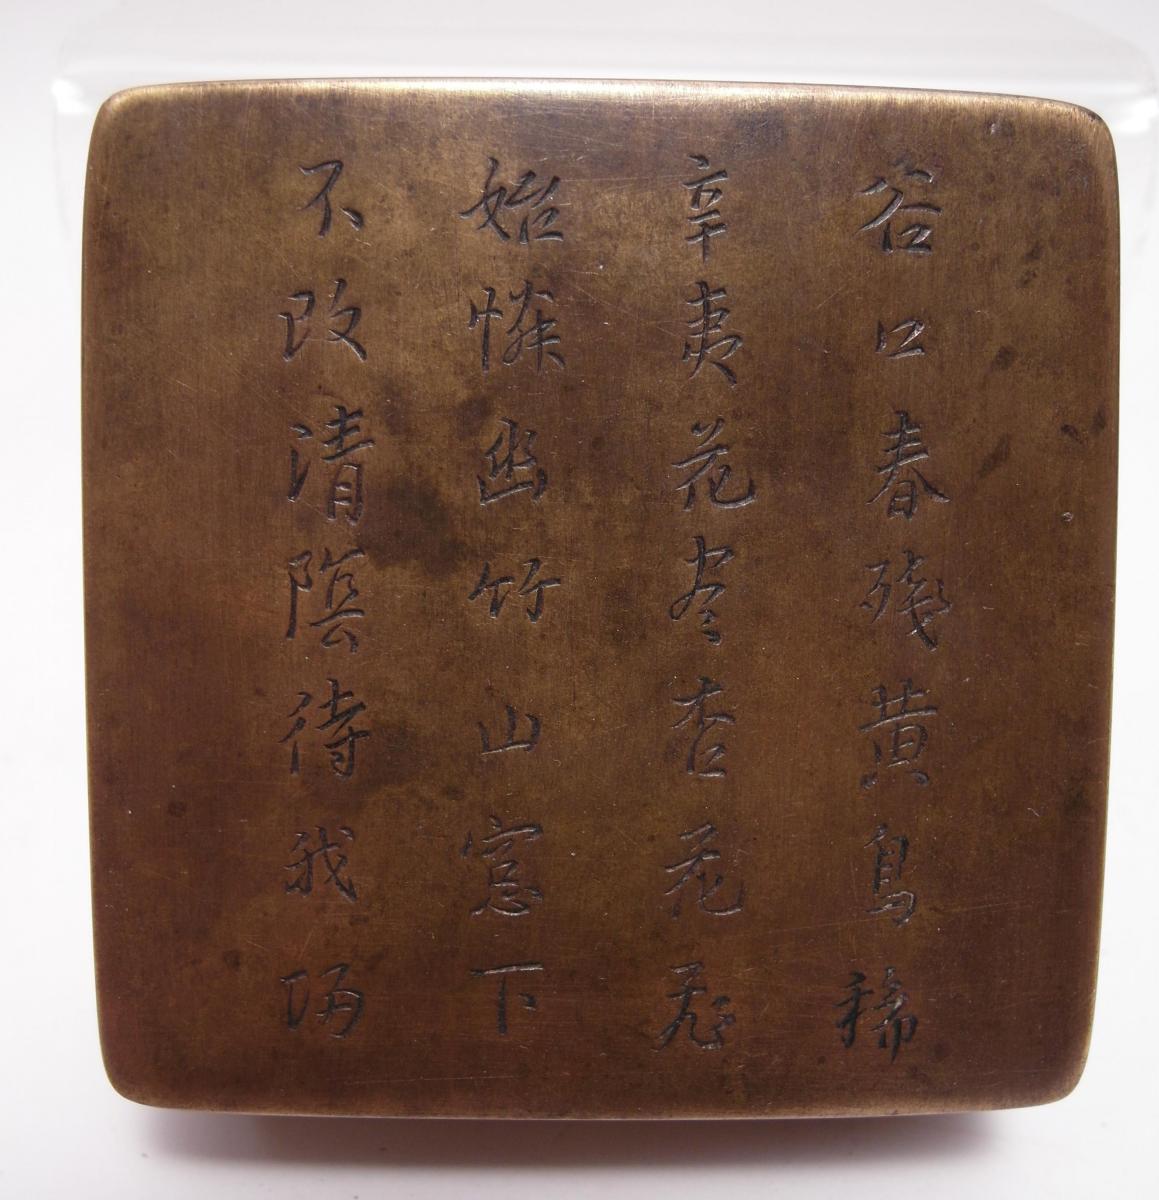 谷口春残黄鳥稀
辛夷花尽杏花飛
始憐幽竹山窓下
不改清陰待我归